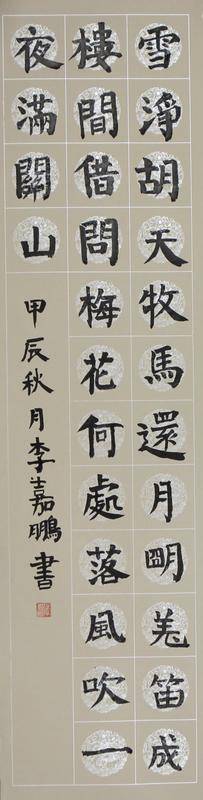 雪淨胡天牧馬還月明羗笛戍
樓間借問梅花何處落風吹一
夜滿關山
甲辰秋月李嘉鵬書